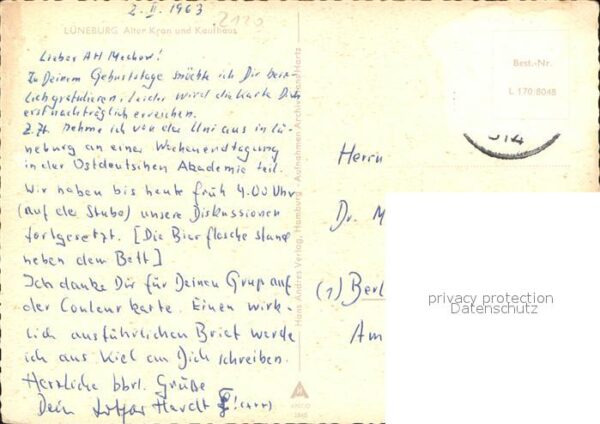 2. II. 1963
2120
LÜNEBURG Alter Kran und Kaufhaus
Lieber AH Mechow!
Zu Deinem Geburtstage möchte ich Dir herz-
lich gratulieren, leider wird die Karte Dich
erst nachträglich erreichen.
Z. Zt. nehme ich von der Uni aus in Lü-
neburg an einer Wochenendtagung
in der Ostdeutschen Akademie teil.
Wir haben bis heute früh 4.00 Uhr
(auf der Stube) unsere Diskussionen
fortgesetzt. [Die Bierflasche stand
neben dem Bett]
Ich danke Dir für Deinen Gruß auf
der Couleurkarte. Einen wirk-
lich ausführlichen Brief werde
ich aus Kiel an Dich schreiben.
Herzliche bbrl. Grüße
Dein Lothar
Hans Andres Verlag, Hamburg · Aufnahmen Archiv Hans Hartz
Best.-Nr.
L 170 8048
Herrn
Dr. M
(1) Berl
Am
privacy protection
Datenschutz